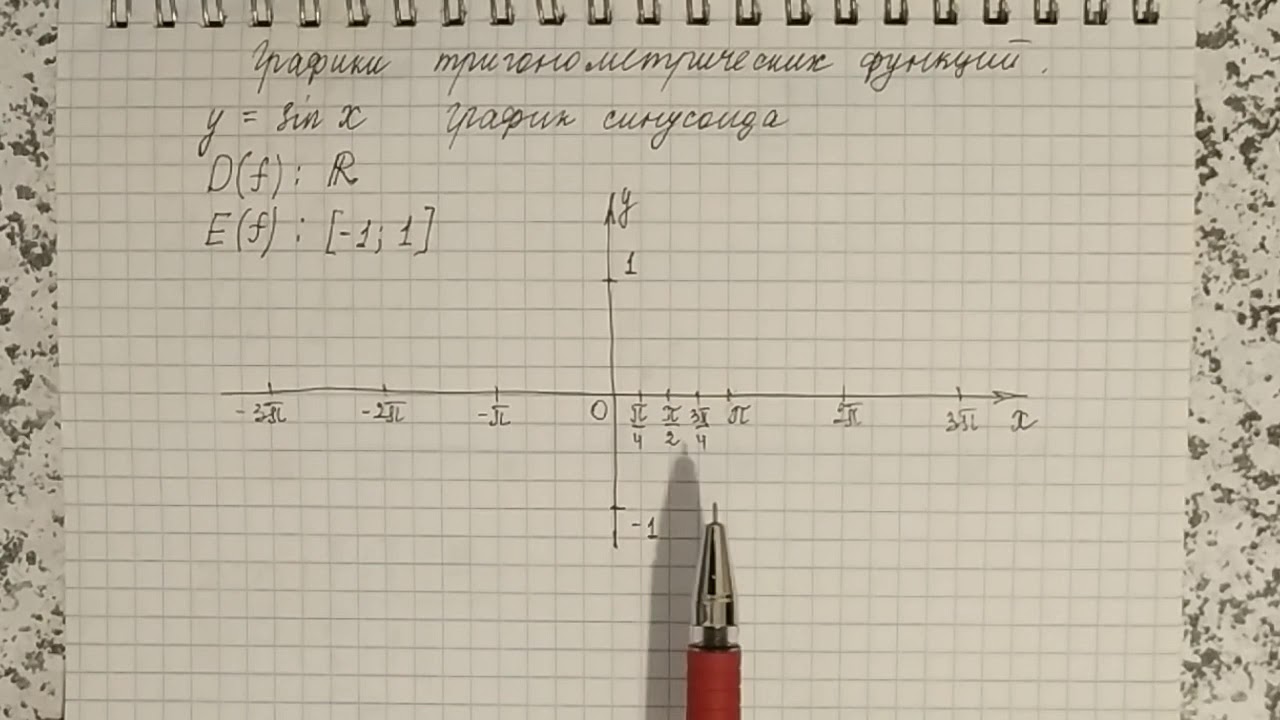 Графики тригонометрических функций.
y = sin x график синусоида
D(f): ℝ
E(f): [-1; 1]
y
1
-3π -2π -π 0 π/4 π/2 3π/4 π 2π 3π x
-1